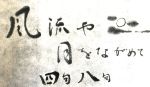 風流や
月をながめて
四句八句